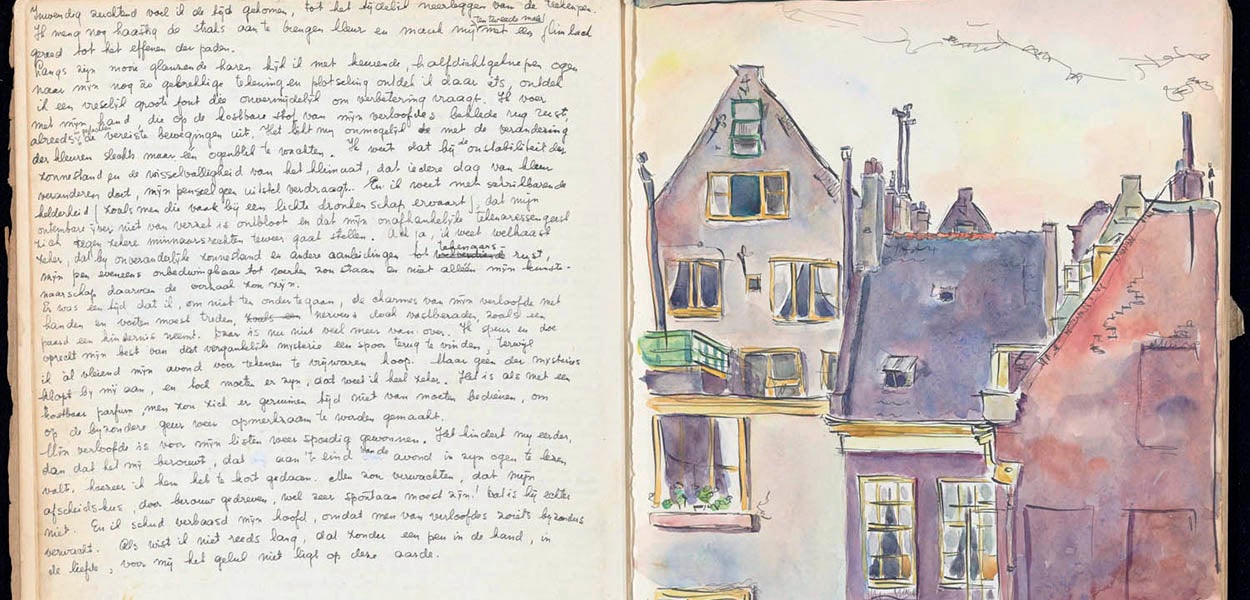 Inwendig zuchtend voel ik de tijd gekomen, tot het tijdelijk neerleggen van de tekenpen.
Ik meng nog haastig de straks aan te brengen kleur en maak mij ten tweede male met een glimlach
gereed tot het effenen der paden.
Langs zijn mooie glanzende haren kijk ik met keurende, halfdichtgeknepen ogen
naar mijn nog zo gebrekkige tekening en plotseling ontdek ik daar iets, ontdek
ik een vreselijk grote fout die onvermijdelijk om verbetering vraagt. Ik voer
met mijn hand, die op de kostbare stof van mijn verloofdes beklede rug rust,
alreeds de vereiste bewegingen uit. Het lijkt mij onmogelijk met de verandering
der kleuren slechts maar één ogenblik te wachten. Ik weet dat bij de onstabiliteit der
zonnestand en de wisselvalligheid van het klimaat, dat iedere dag van kleur
veranderen doet, mijn penseel geen uitstel verdraagt. En ik weet met
helderheid (zoals men die vaak bij een lichte dronkenschap ervaart), dat mijn
ontembare ijver niet van verzet is ontbloot en dat mijn onafhankelijke tekenaressengeest
zich tegen zekere minnaarsrechten teweer gaat stellen. Ach ja, ik weet welhaast
zeker, dat bij onveranderlijk zonnestand en andere aanleidingen tot tekenaars- rust,
mijn pen eveneens onbedwingbaar tot werken zou staan en niet alléén mijn kunste-
naarschap daarvan de oorzaak zou zijn.
Er was een tijd dat ik, om niet ten onder te gaan, de charmes van mijn verloofde met
handen en voeten moest treden, nerveus doch vastberaden, zoals een
paard een hindernis neemt. Daar is nu niet veel meer van over. Ik speur en doe
oprecht mijn best van dat vergankelijke mysterie een spoor terug te vinden, terwijl
ik àl vleiend mijn avond voor tekenen te vrijwaren hoop. Maar geen der mysteries
klopt bij mij aan, en toch moeten er zijn, dat weet ik heel zeker. Het is als met een
kostbaar parfum, men zou zich er geruimen tijd niet van moeten bedienen, om
op de bijzondere geur weer opmerkzaam te worden gemaakt.
Mijn verloofde is voor mijn listen weer spoedig gewonnen. Het hindert mij eerder,
dan dat het mij berouwt, dat aan 't eind van de avond in zijn ogen te lezen
valt, hoezeer ik hem heb te kort gedaan. Men zou verwachten, dat mijn
afscheidskus, door berouw gedreven, wel zeer spontaan moest zijn! Dat is hij echter
niet. En ik schud verbaasd mijn hoofd, omdat men van verloofdes zoiets bijzonders
verwacht. Als wist ik niet reeds lang, dat zonder een pen in de hand, in
de liefde, voor mij het geluk niet ligt op deze aarde.